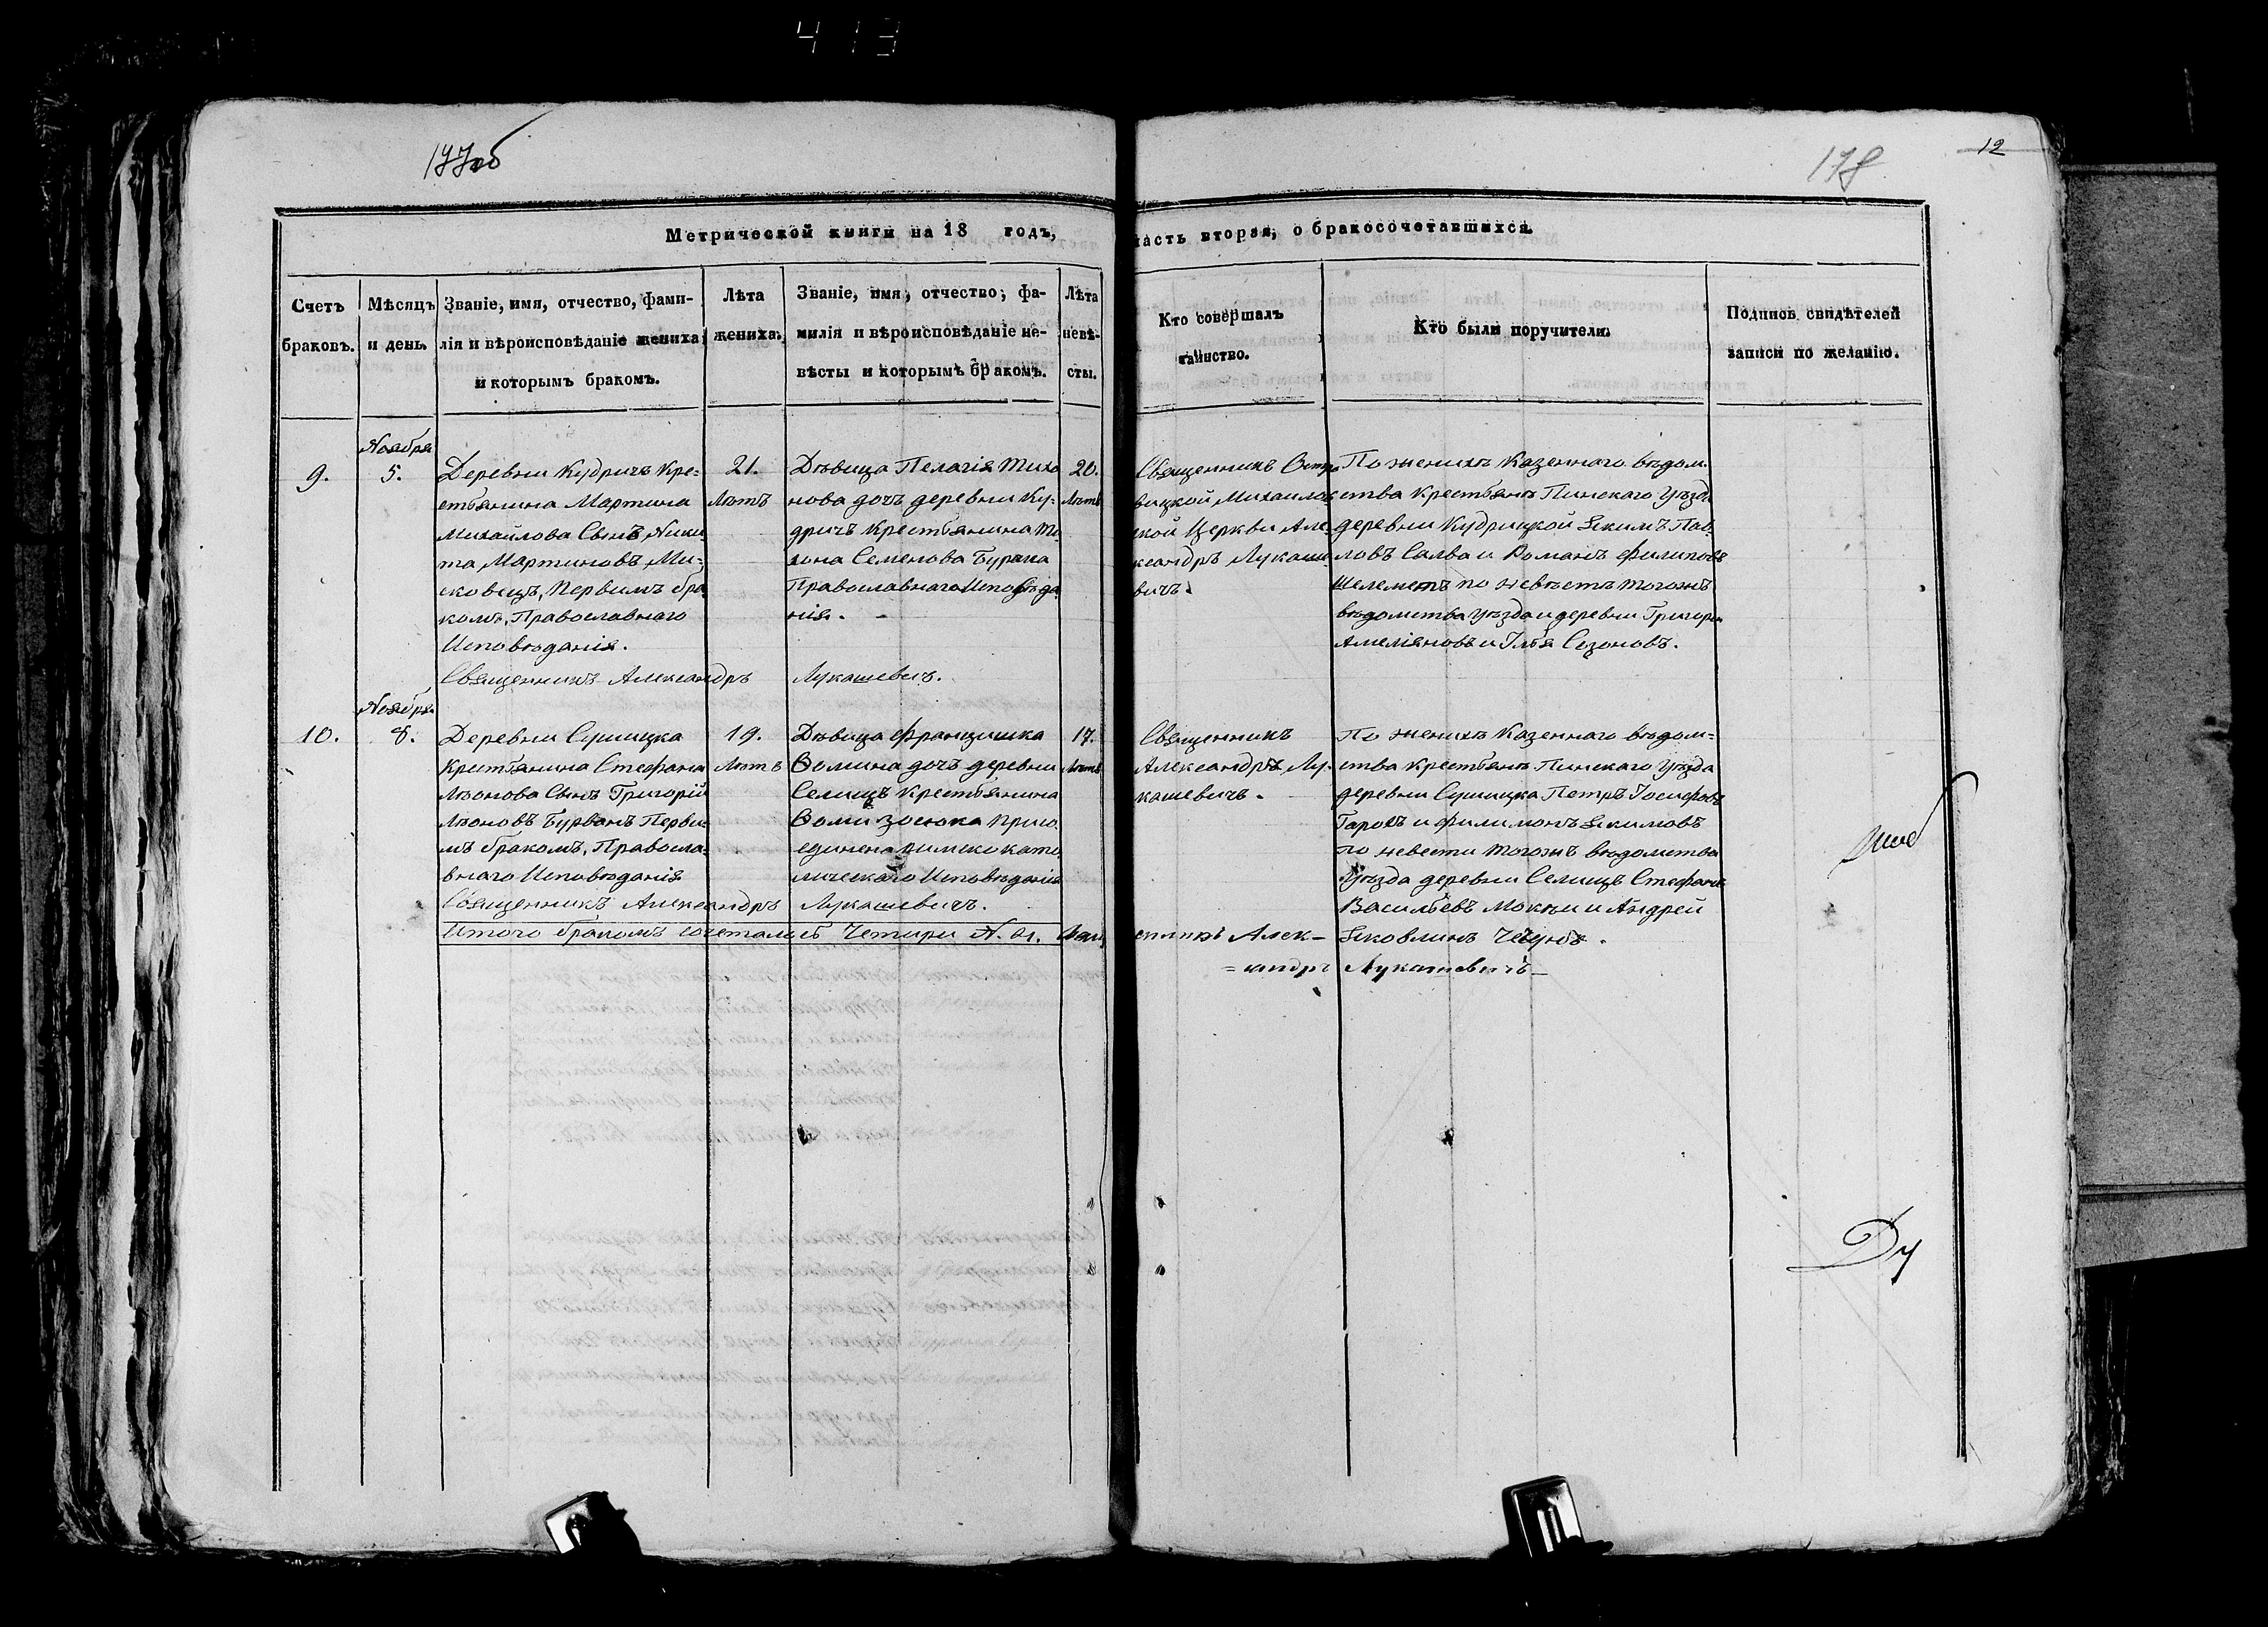 413
177об
178
12
Метрической книги на 18 годъ,
часть вторая, о бракосочетавшихся.
Счетъ
браковъ.
Мѣсяцъ
и день.
Званіе, имя, отчество, фами-
лія и вѣроисповѣданіе жениха,
и которымъ бракомъ.
Лѣта
жениха.
Званіе, имя, отчество, фа-
милія и вѣроисповѣданіе не-
вѣсты и которымъ бракомъ.
Лѣта
невѣ-
сты.
Кто совершалъ
таинство.
Кто были поручители.
Подпись свидѣтелей
записи по желанію.
9.
Ноября
5.
Деревни Кудричъ Кре-
стьянина Мартина
Михайлова Сынъ Ники
та Мартиновъ Ми-
сковецъ, Первимъ бра
комъ, Православнаго
Исповѣданія.
Священникъ Александръ Лукашевичъ.
21.
Лѣтъ
Дѣвица Пелагія Тихо
нова дочъ деревни Ку-
дричъ Крестьянина Ти
хона Семенова Бурака
Православнаго Исповѣда
нія.
20.
Лѣтъ
Священникъ Остро
вицкой Михайлов
ской Церкви Але-
ксандръ Лукаше
вичъ.
По женихѣ Казеннаго вѣдом-
ства Крестьянъ Пинскаго Уѣзда
деревни Кудрицкой Якимъ Пав-
ловъ Салва и Романъ Филиповъ
Шелеметъ по невѣстѣ тогожъ
вѣдомства Уѣзда и деревни Григори
Амеліяновъ и Илья Созоновъ.
10.
Ноября
8.
Деревни Сушицка
Крестьянина Стефана
Лѣонова Сынъ Григорій
Лѣоновъ Бурванъ Перви-
мъ бракомъ, Правосла-
внаго Исповѣданія
Священникъ Александръ Лукашевичъ.
19.
Лѣтъ
Дѣвица Францишка
Ѳомина дочъ деревни
Селищъ Крестьянина
Ѳоми Зосюка присо
единена римско като
лическаго Исповѣданія
17.
Лѣтъ
Священникъ
Александръ Лу-
кашевичъ.
По женихѣ Казеннаго вѣдом-
ства Крестьянъ Пинскаго Уѣзда
деревни Сушицка Петръ Іосифовъ
и Филимонъ Якимовъ
по невести тогожъ вѣдомства
Уѣзда деревни Селищъ Стефанъ
Васильевъ и Андрей
Яковлинъ
Итого бракомъ сочеталось Четири
Алек-
=сандръ Лукашевичъ